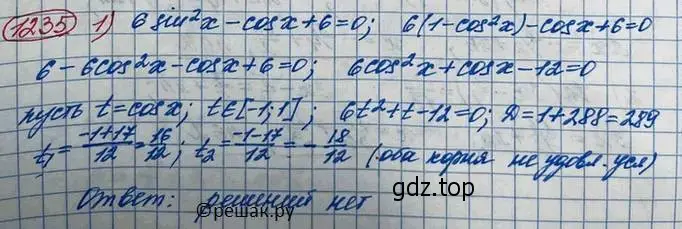 1235 1) 6 sin²x - cos x + 6 = 0; 6(1 - cos²x) - cos x + 6 = 0
6 - 6cos²x - cos x + 6 = 0; 6cos²x + cos x - 12 = 0
пусть t = cos x; t ∈ [-1; 1]; 6t² + t - 12 = 0; D = 1 + 288 = 289
t₁ = (-1+17)/12 = 16/12; t₂ = (-1-17)/12 = -18/12 (оба корня не удовл. усл)
gdz.top
Ответ: решений нет
©решак.ру